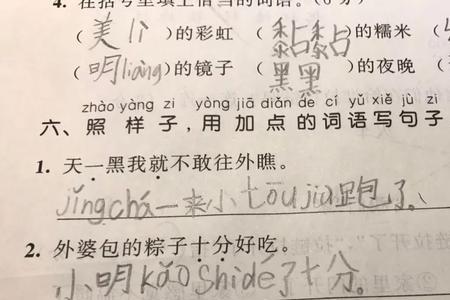 4. 在括号里填上恰当的词语。(6分)
(美lì)的彩虹 (黏黏)的糯米
(明liàng)的镜子 (黑黑)的夜晚
zhào yàng zi yòng jiā diǎn de cí yǔ xiě jù zi
六、照 样 子，用 加 点 的 词 语 写 句 子
1. 天一黑我就不敢往外瞧。
jǐng chá一来小tōu jiù跑了。
2. 外婆包的粽子十分好吃。
小明kǎo shì dé了十分。